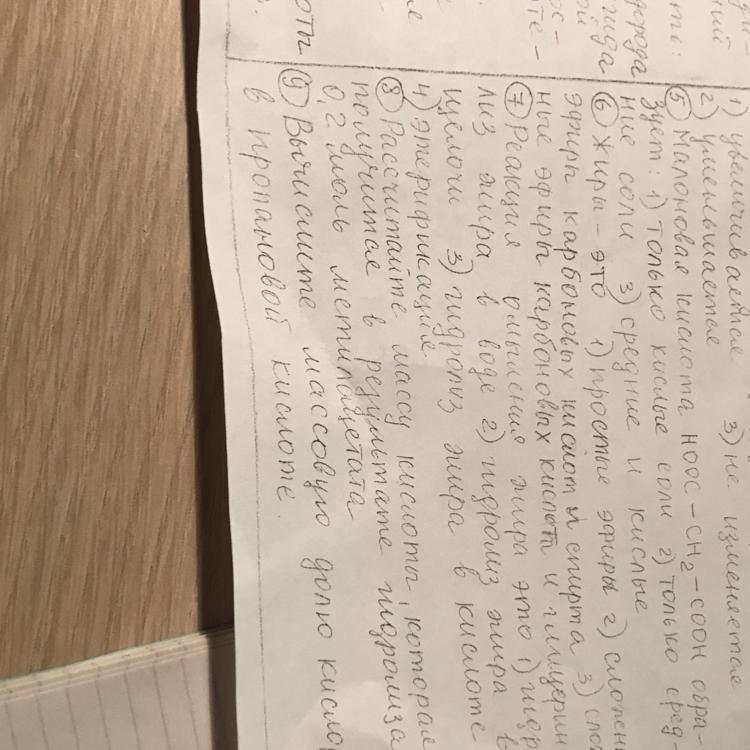 1) увеличивается 3) не изменяется
2) уменьшается
5 Малоновая кислота HOOC-CH2-COOH обра-
зует: 1) только кислые соли 2) только сред
ние соли 3) средние и кислые
6 Жиры - это 1) простые эфиры 2) сложн
эфиры карбоновых кислот и спирта 3) сло
ные эфиры карбоновых кислот и глицерин
7 Реакция омыления жира это 1) гидр
лиз жира в воде 2) гидролиз жира в
щелочи 3) гидролиз жира в кислоте
4) этерификация
8 Рассчитайте массу кислоты, которая
получится в результате гидролиза
0,2 моль метилацетата
9 Вычислите массовую долю кисло
в пропановой кислоте.
ний
дорода
гида
ой
ос-
те-
оты